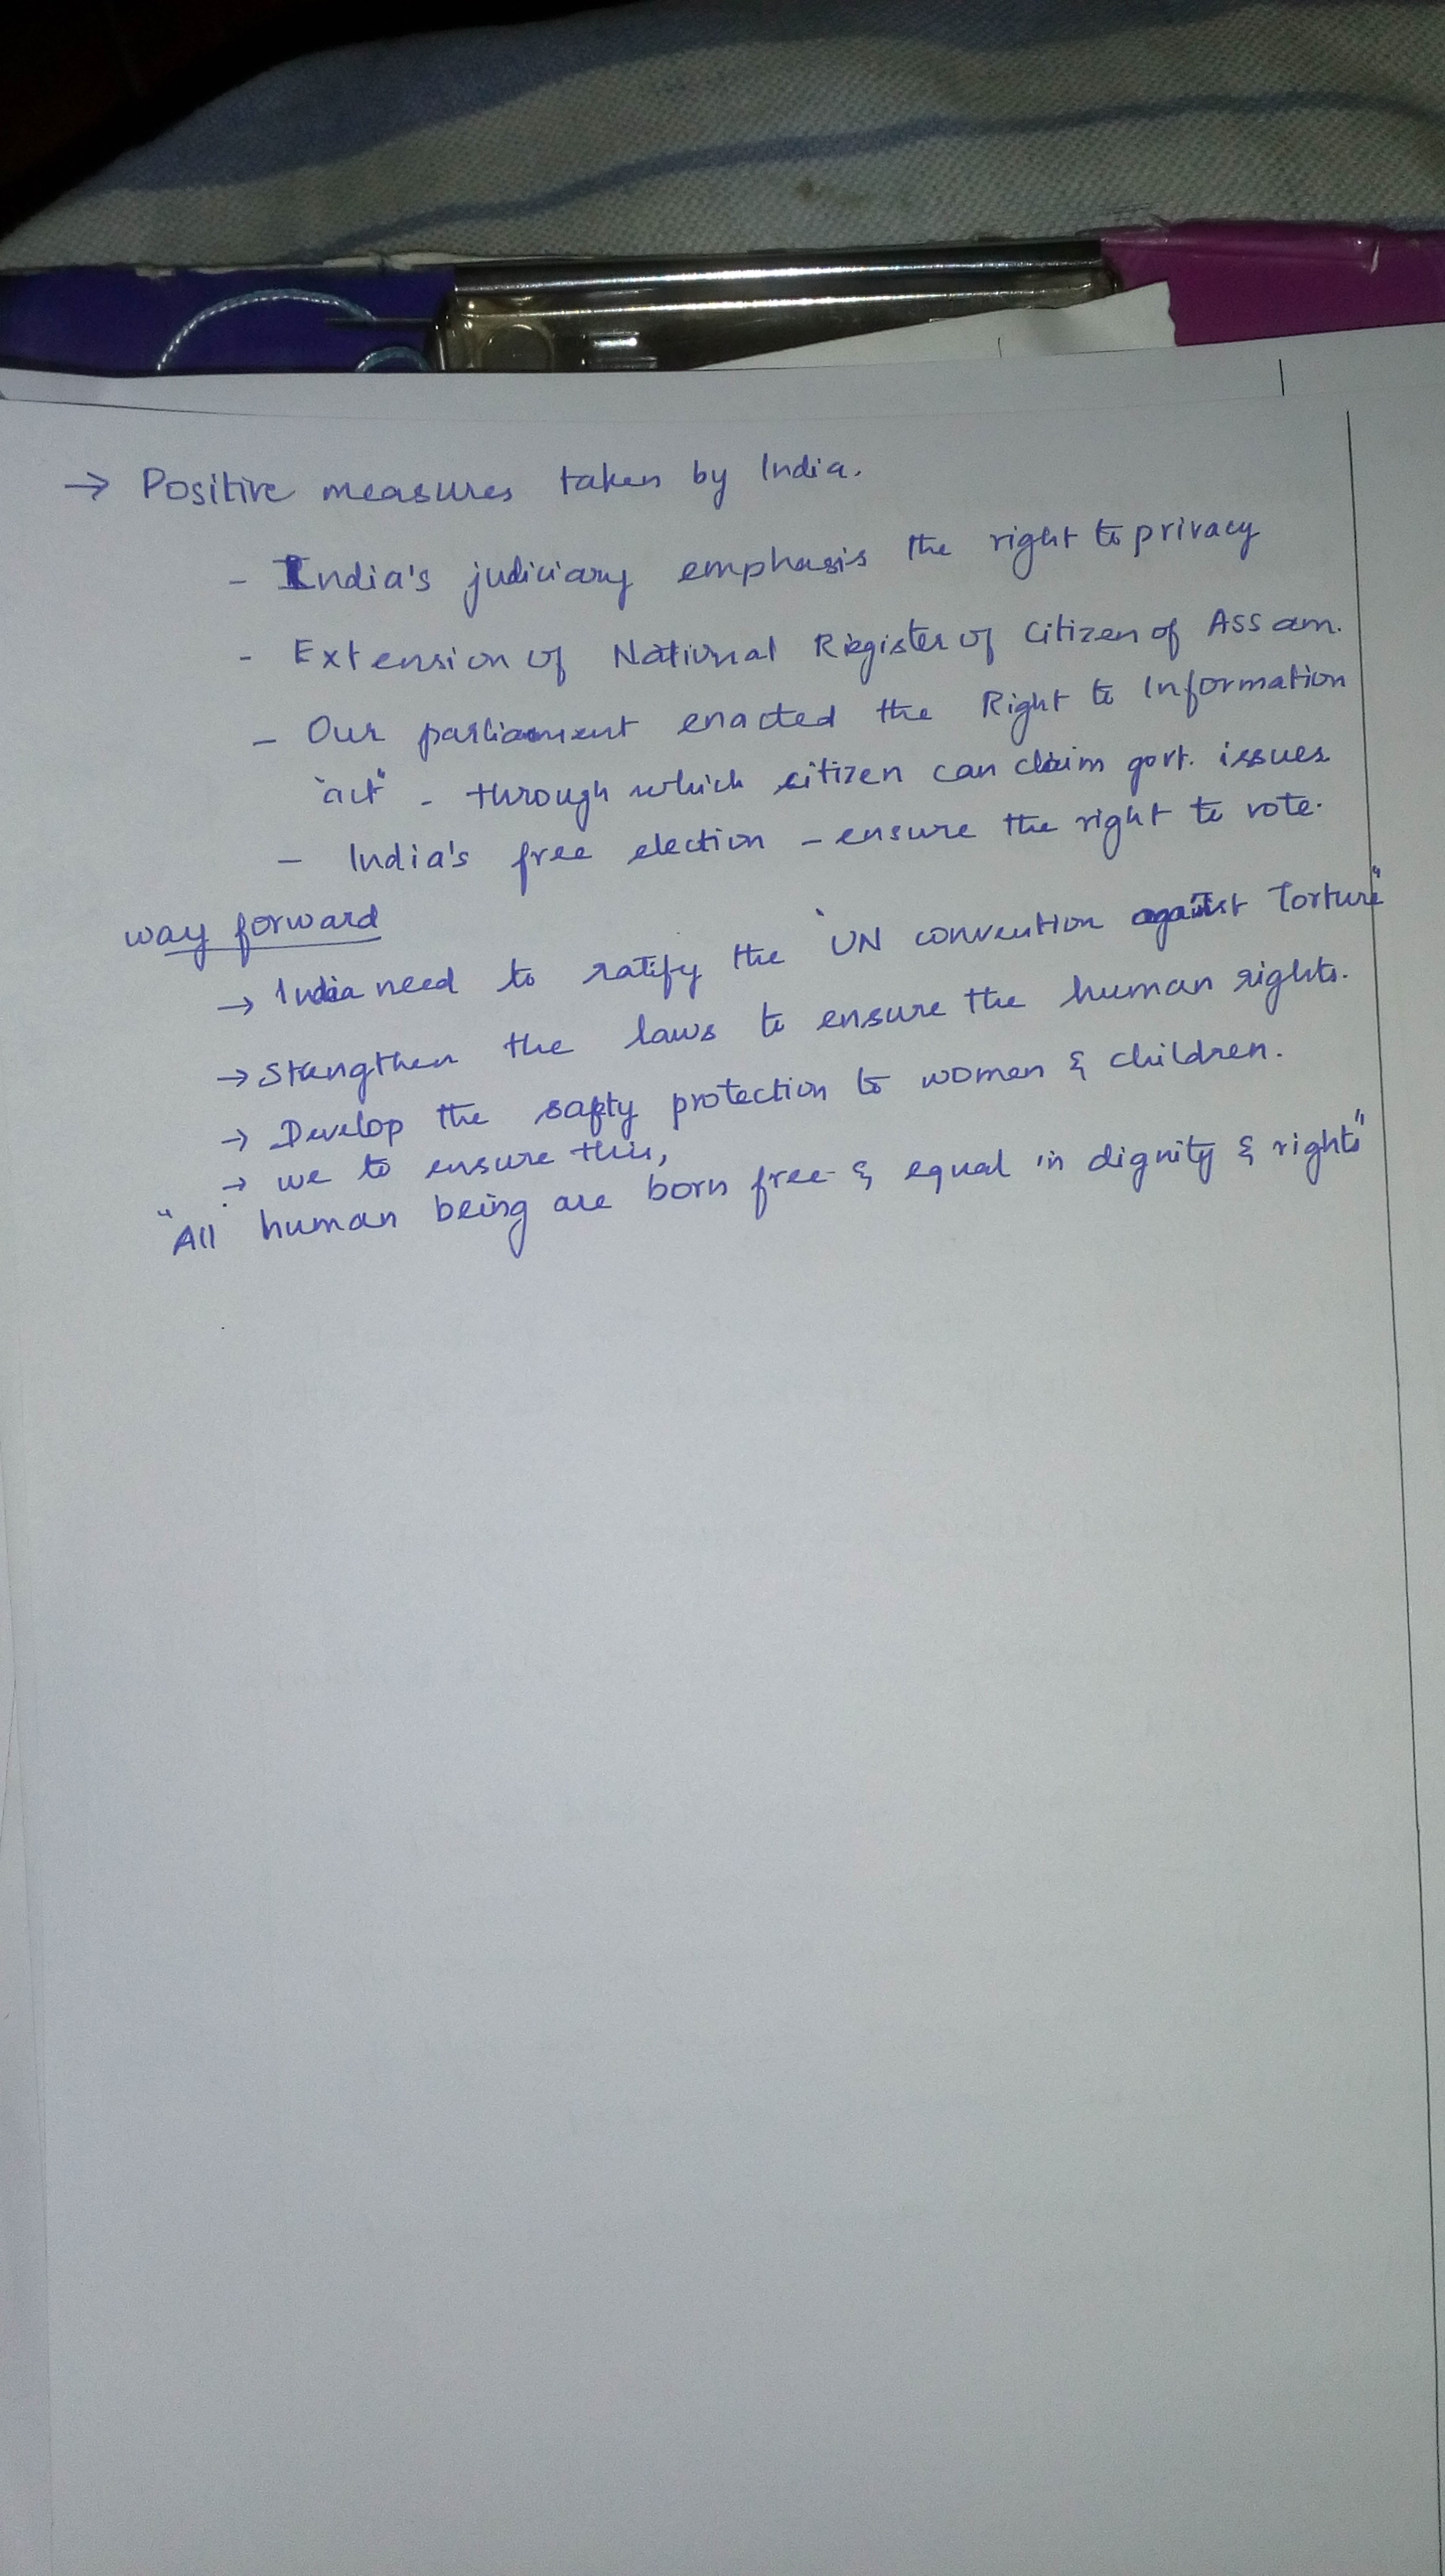 → Positive measures taken by India.
- India's judiciary emphasis the right to privacy
- Extension of National Register of Citizen of Assam.
- Our parliament enacted the Right to Information
"act" - through which citizen can claim govt. issues
- India's free election - ensure the right to vote.
way forward
→ India need to ratify the "UN convention against Torture"
→ Stengthen the laws to ensure the human rights.
→ Develop the safty protection to women & children.
→ we to ensure this,
"All human being are born free & equal in dignity & rights"